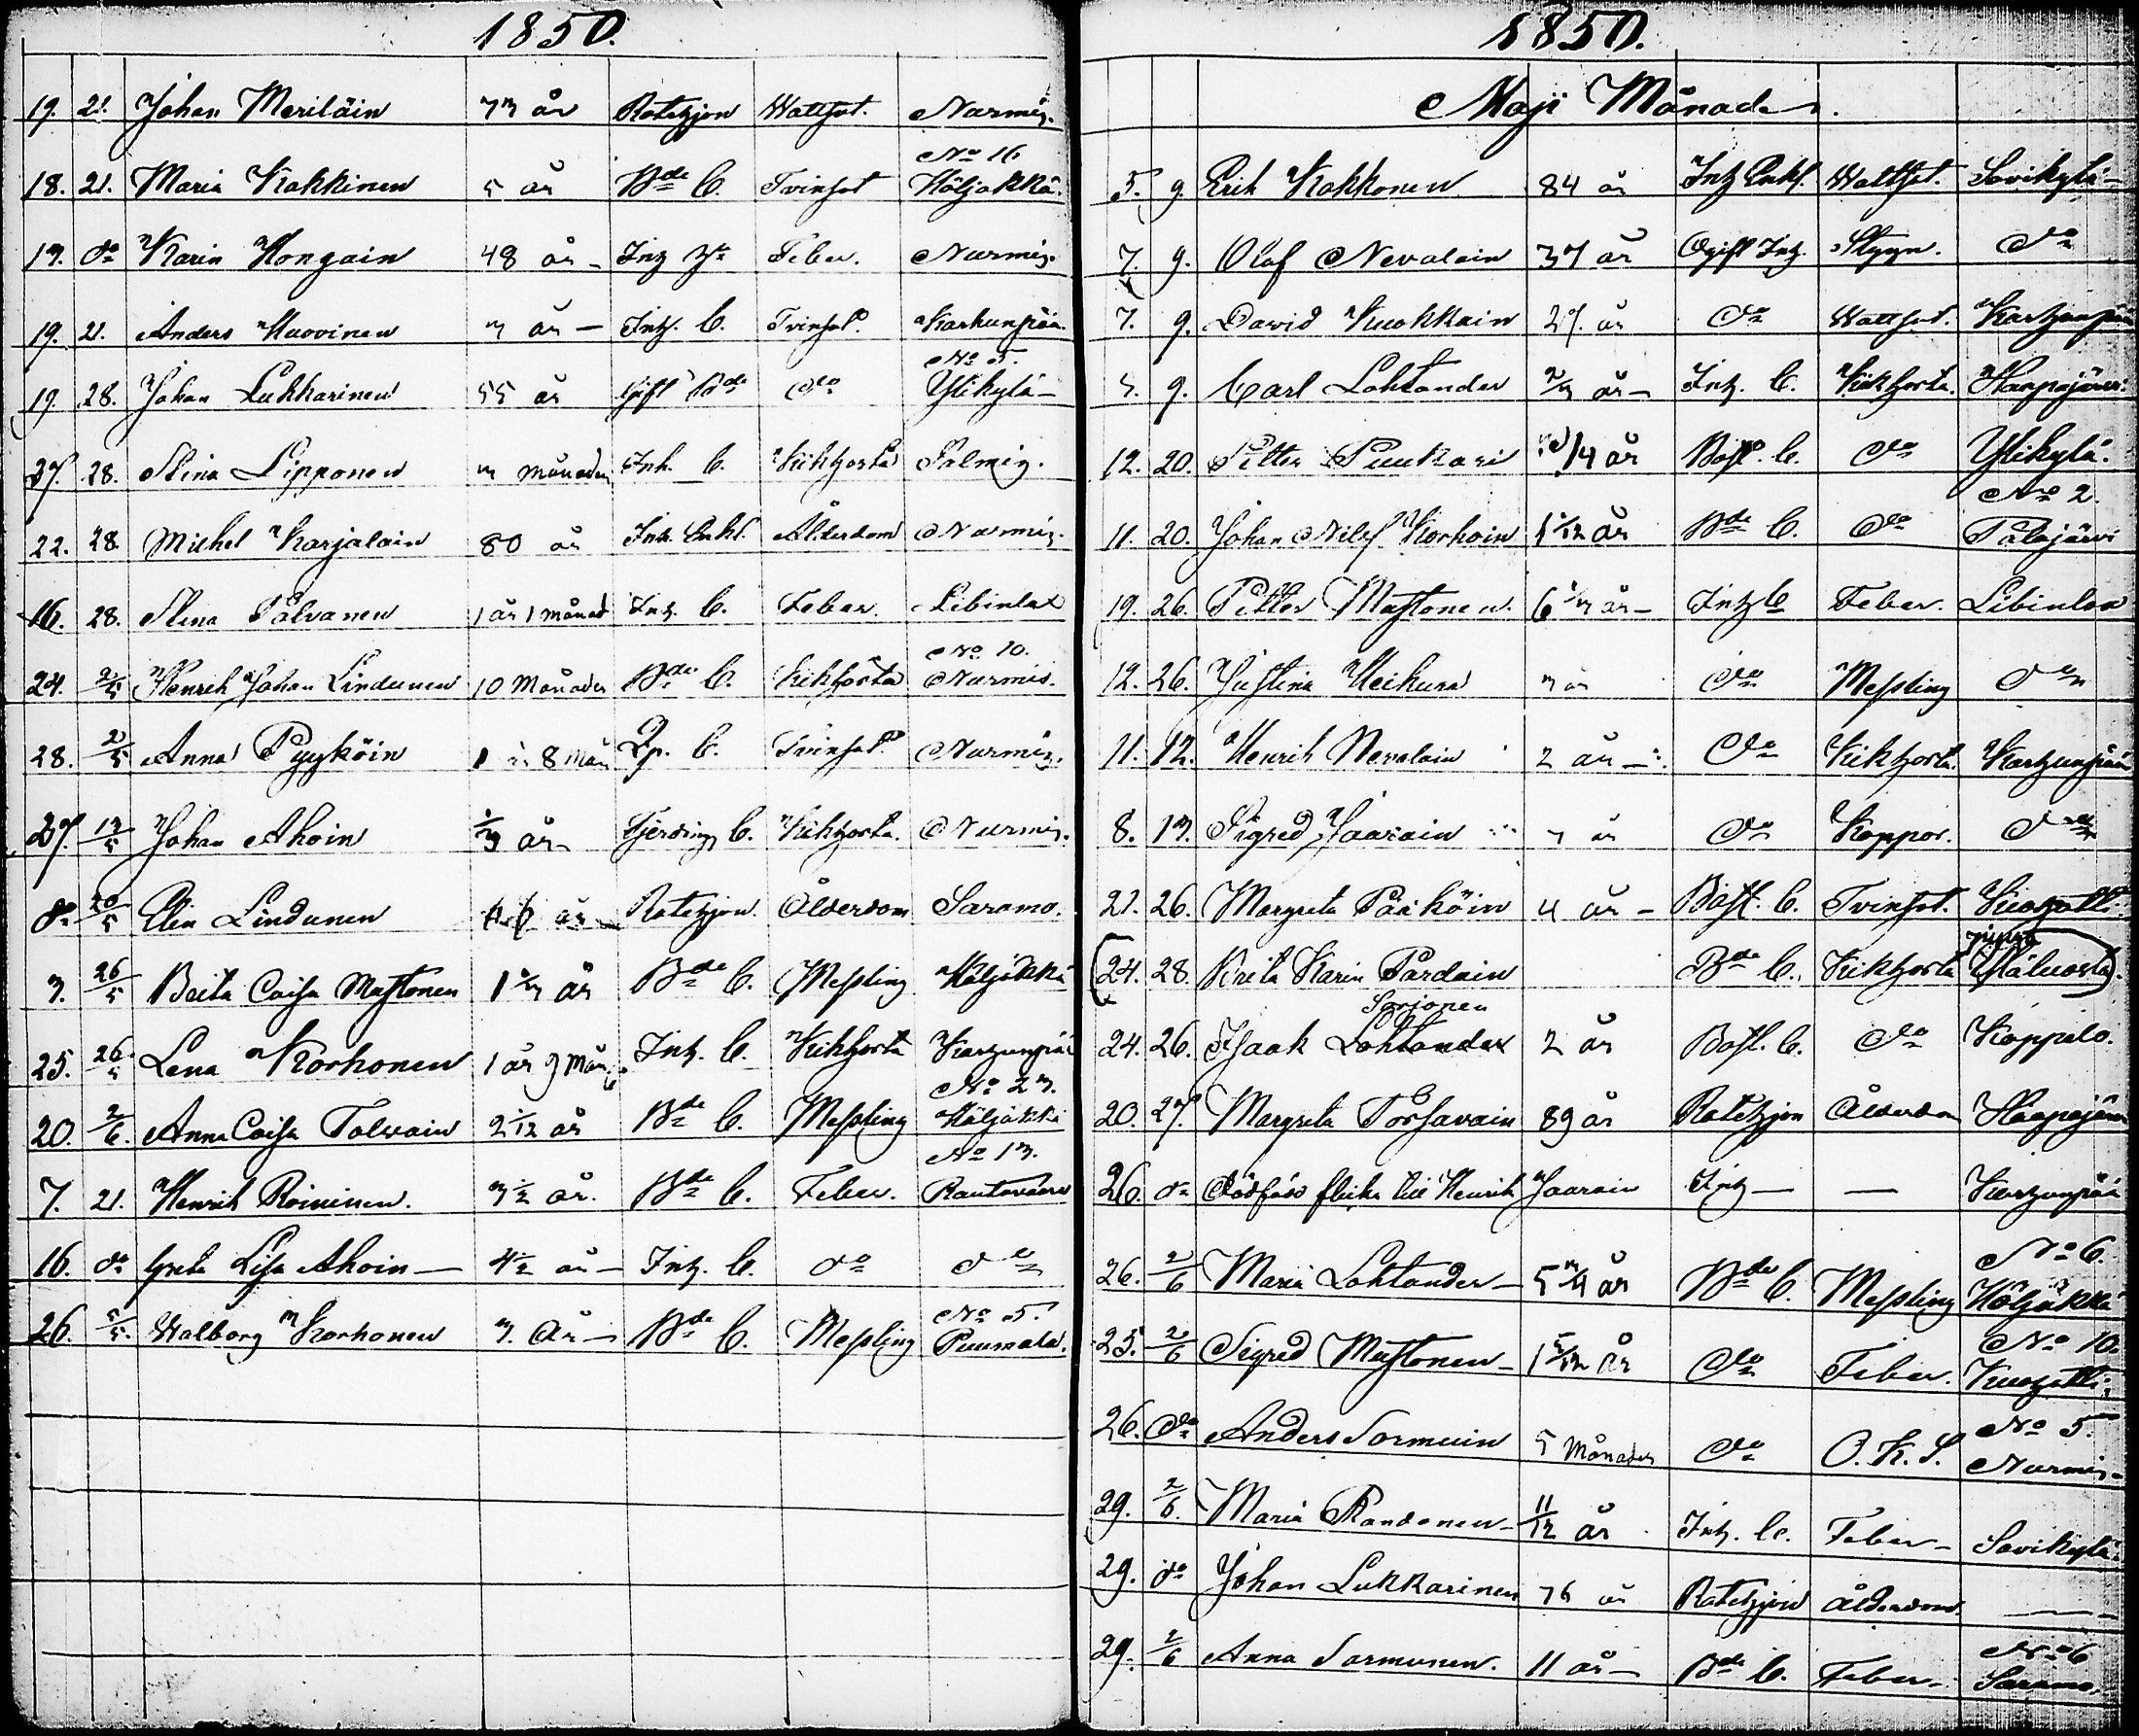 1850.
19. 21. Johan Meriläin 73 år Rotehjon Wattsot. Nurmis.
No 16
18. 21. Maria Kakkinen 5 år Bde C. Tvinsot Höljäkkä.
13. do Karin Hongain 48 år - Feber. Nurmis.
19. 21. Anders Huovinen 3 år - Inh. C. Tvinsot. Karhunpää.
No 5.
19. 28. Johan Lukkarinen 55 år Gift Bde do Ylikylä -
27. 28. Stina Lipponen 3 månader Inh. C. Kikhosta Salmis.
22. 28. Michel Karjalain 80 år Inh. Enkl. Ålderdom Nurmis.
16. 28. Stina Pålvanen 1 år 1 månad Inh. C. Feber. Libinlax
No 10.
24. 2/5 Henrik Johan Lindunen 10 Månader Bde C. Kikhosta Nurmis.
28. 2/5 Anna Pyyköin 1 år 8 Mån C. Tvinsot. Nurmis.
27. 13/5 Johan Ahoin år Fjerding C. Kikhosta. Nurmis.
do 20/5 Elin Lindunen år - Rotehjon. Ålderdom Saramo.
3. 26/5 Brita Caisa Mustonen år Bde C. Messling Höljäkkä
25. 26/5 Lena Korhonen 1 år 9 Mån. Inh. C. Kikhosta Karhunpää
No 23.
20. 2/6. Anna Caisa Tolvain 2 1/12 år Bde C. Messling Höljäkkä
No 13.
7. 21. Henrik Roininen. 3 1/2 år. Bde C. Feber. Rautavaara
16. do Greta Lisa Ahoin - 4 1/2 år - Inh. C. do do
No 5.
26. 5/5. Walborg Korhonen 3. år - Bde C. Messling Puumala.
1850.
Maji Månader.
5. 9. Erik Kokkonen 84 år Inh Enkl. Wattsot. Savikylä -
7. 9. Olaf Nevalain 37 år Ogift Inh. Stygn. do
7. 9. David Kuokkain 27 år do Wattsot. Karhunpää
9. Carl Lohtander 2/3 år - Inh. C. Kikhosta. Haapajärvi.
12. 20. Petter Puukari /4 år Bost. C. do Ylikylä.
No 2.
11. 20. Johan Nils Korhoin år Bde C. do Pålojärvi
19. 26. Petter Mustonen. år - Inh C Feber. Libinlax
12. 26. Justina Heikura 3 år do Messling do
11. 12. Henrik Nevalain 2 år - do Kikhosta. Karhunpää
8. 13. Sigred Jaarain år do Koppor. do
21. 26. Margreta Pääköin 4 år - Bost. C. Tvinsot. Kuohatti.
24. 28. Brita Karin Pardain Bde C. Kikhosta
Sorjonen
24. 26. Isaak Lohtander 2 år Bost. C. do Koppelo.
20. 27. Margreta Torsavain 89 år Rotehjon Ålderdom Haapajärvi
26. do Dödfödd flicka till Henrik Jaarain Inh - - Karhunpää
No 6.
26. 2/6 Maria Lohtander - 5 3/4 år Bde C. Messling Höljäkkä
No 10.
25. 2/6 Sigred Mustonen - 1 5/12 år do Feber. Kuohatti.
No 5.
26. do Anders Sormuin 5 Månader do O. K. S. Nurmis -
29. 2/6. Maria Randonen - 11/12 år Inh. C. Feber - Savikylä.
29. do Johan Lukkarinen 76 år Rotehjon ålderdom. -
No 6
29. 2/6 Anna Sormunen. 11 år - Bde C. Feber. Saramo.